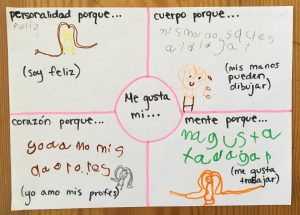 personalidad porque...
feliz
(soy feliz)
cuerpo porque...
mis manos
(mis manos
pueden
dibujar)
Me gusta
mi...
corazón porque...
yo amo mis
(yo amo mis profes)
mente porque...
me gusta
(me gusta
trabajar)